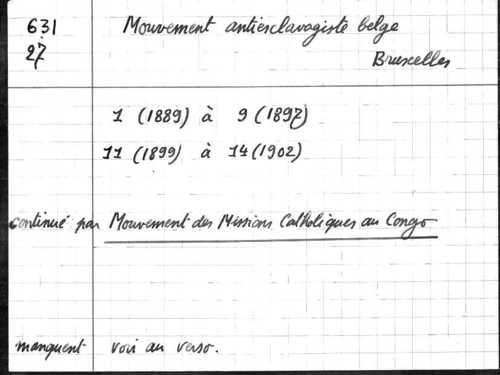 631 Mouvement antiesclavagiste belge
27 Bruxelles
1 (1889) à 9 (1897)
11 (1899) à 14 (1902)
continué par Mouvement des Missions Catholiques au Congo
manquent voir au verso.